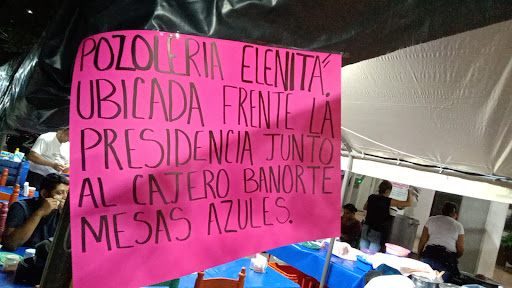 POZOLERIA ELENITA".
UBICADA FRENTE LA
PRESIDENCIA JUNTO
AL CAJERO BANORTE
MESAS AZULES.